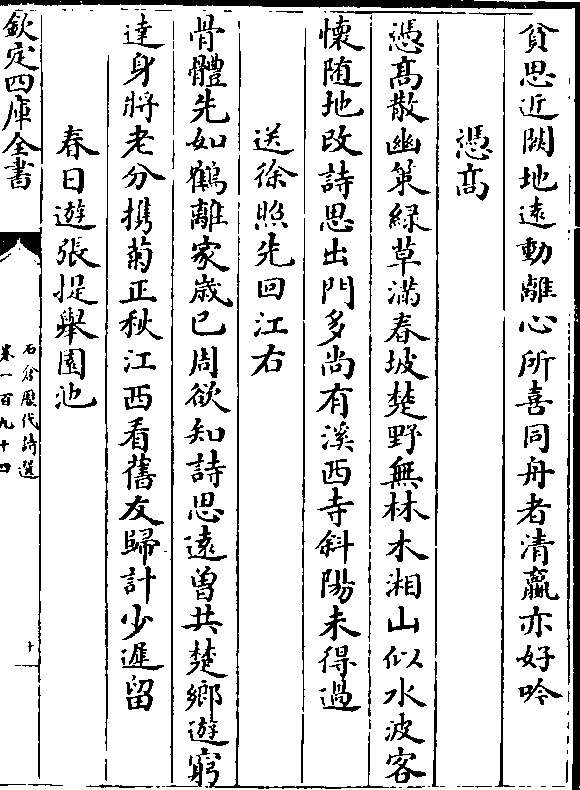 貧思近闕地遠動離心所喜同舟者清羸亦好吟
憑髙
憑髙散幽策緑草滿春坡楚野無林木湘山似水波客
懐随地改詩思出門多尚有溪西寺斜陽未得過
送徐照先回江右
骨體先如鶴離家歳已周欲知詩思遠曾共楚鄉遊窮
達身將老分携菊正秋江西看舊友歸計少遲留
春日遊張提舉園池
欽定四庫全書
石倉歴代詩選
卷一百九十四
十